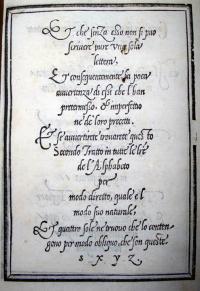 Et che senza esso non si può
scrivere pure una sola
lettera.
Et conseguentemente la poca
avvertenza di essi che l'han
pretermesso, è imperfetto
ne de loro precetti.
Et se avvertirete trovarete questo
Secondo Tratto in tutte le lr̃e
de l'Alphabeto
per
modo diretto, quale è l
modo suo naturale,
Et quattro sole ne truovo che lo conten-
gono per modo obliquo, che son queste.
s x y z